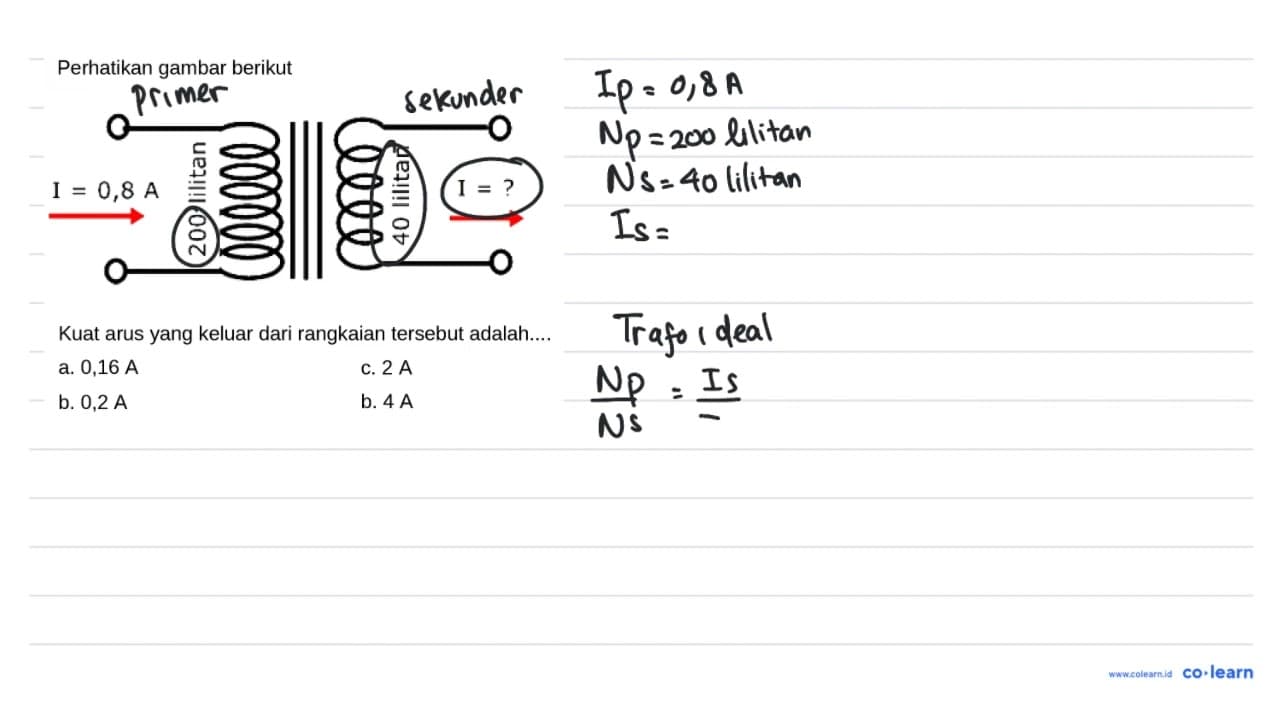 Perhatikan gambar berikut
primer
sekunder
I = 0,8 A
200 lilitan
40 lilitan
I = ?
Kuat arus yang keluar dari rangkaian tersebut adalah....
a. 0,16 A
c. 2 A
b. 0,2 A
b. 4 A
Ip = 0,8 A
Np = 200 lilitan
Ns = 40 lilitan
Is =
Trafo ideal
Np = Is
Ns
www.colearn.id co•learn